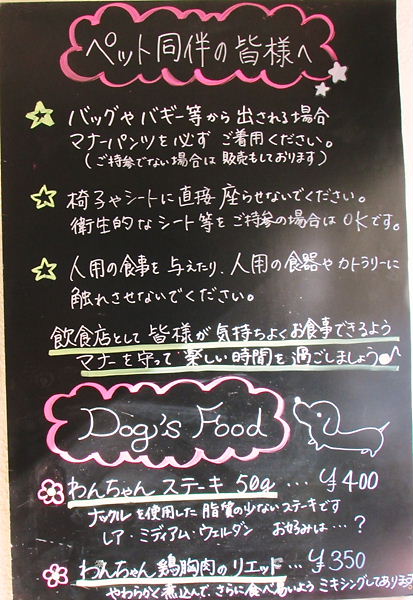 ペット同伴の皆様へ
バッグやバギー等から出される場合
マナーパンツを必ずご着用ください。
(ご持参でない場合は販売もしております)
椅子やシートに直接座らせないでください。
衛生的なシート等をご持参の場合はOKです。
人用の食事を与えたり、人用の食器やカトラリーに
触れさせないでください。
飲食店として皆様が気持ちよくお食事できるよう
マナーを守って楽しい時間を過ごしましょう♪
Dog's Food
わんちゃんステーキ 50g … ¥400
ナックルを使用した脂質の少ないステーキです
レア・ミディアム・ウェルダン お好みは…?
わんちゃん鶏胸肉のリエット… ¥350
やわらかく煮込んで、さらに食べやすいよう ミキシングしてあります